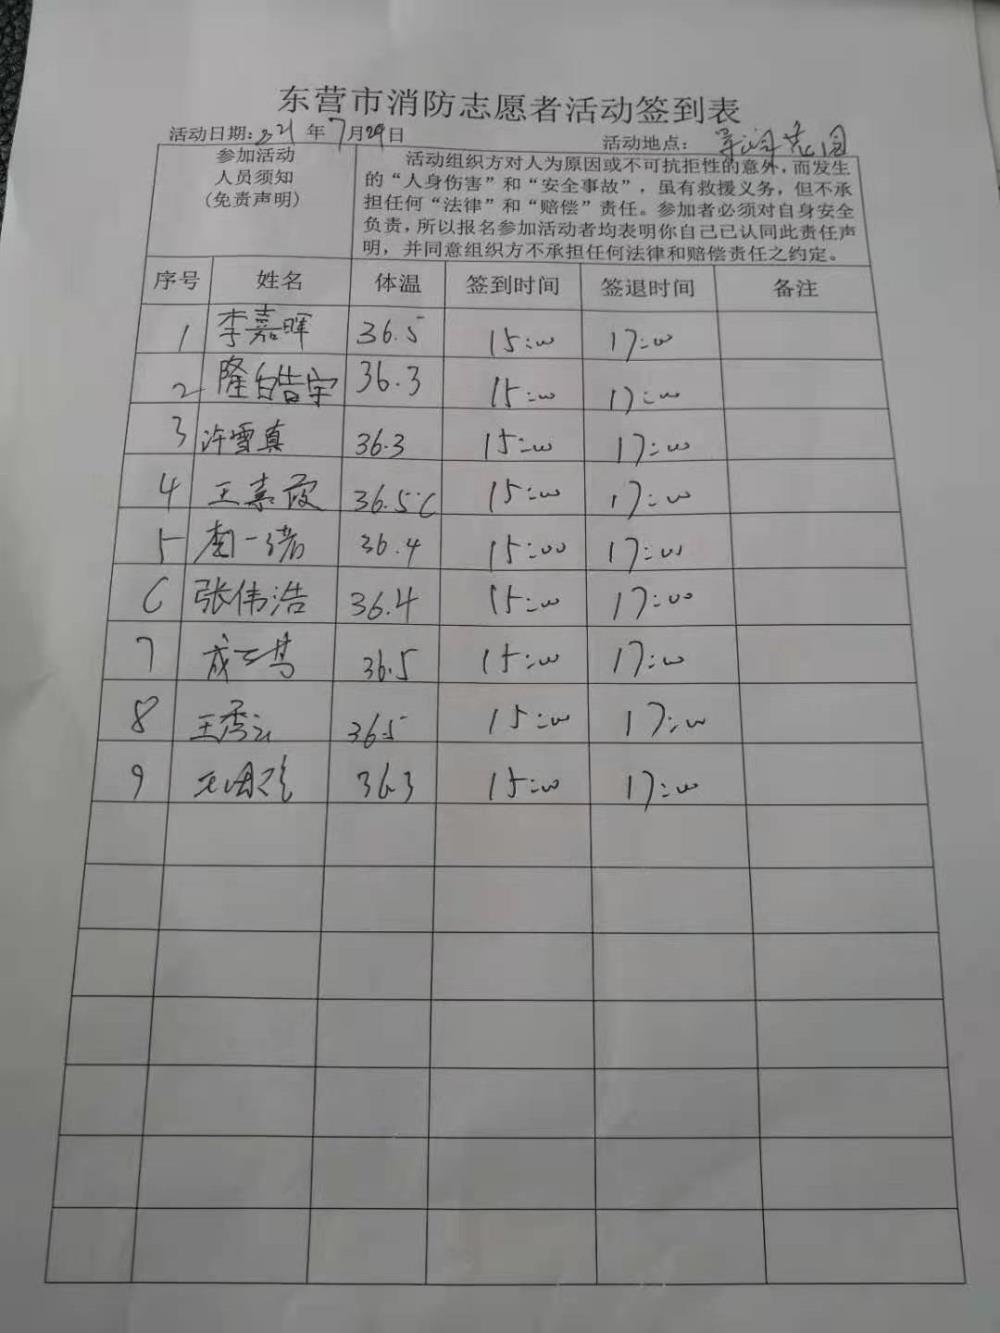 东营市消防志愿者活动签到表
活动日期:21年7月29日 活动地点:
参加活动
人员须知
(免责声明)
活动组织方对人为原因或不可抗拒性的意外,而发生
的“人身伤害”和“安全事故”,虽有救援义务,但不承
担任何“法律”和“赔偿”责任。参加者必须对自身安全
负责,所以报名参加活动者均表明你自己已认同此责任声
明,并同意组织方不承担任何法律和赔偿责任之约定。
序号 姓名 体温 签到时间 签退时间 备注
1 李嘉晖 36.5 15:00 17:00
2 隆皓宇 36.3 15:00 17:00
3 许雪真 36.3 15:00 17:00
4 王嘉霞 36.5℃ 15:00 17:00
5 李一诺 36.4 15:00 17:00
6 张伟浩 36.4 15:00 17:00
7 36.5 15:00 17:00
8 王秀云 36.5 15:00 17:00
9 36.3 15:00 17:00